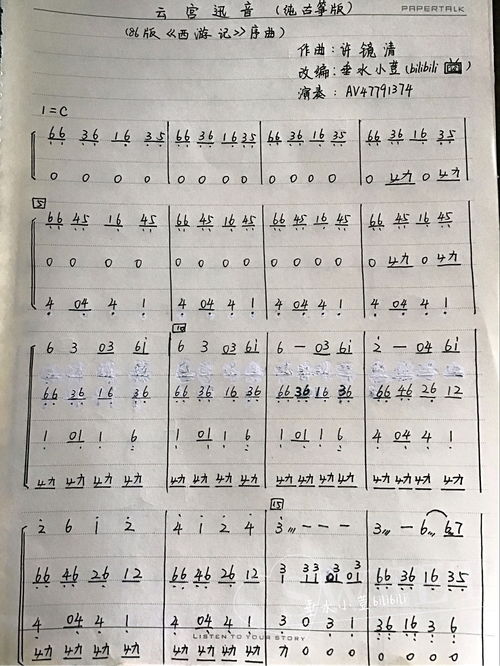 云宫迅音 (纯古筝版)
PAPERTALK
(86版《西游记》序曲)
作曲: 许镜清
改编: 垂水小荳 (bilibili
演奏: AV47791374
1=C
66 36 16 35 | 66 36 16 35 | 66 36 16 35 | 66 36 16 35
0 0 0 0 | 0 0 0 0 | 0 0 0 0 | 0 4力 0 4力
5
66 45 16 45 | 66 45 16 45 | 66 45 16 45 | 66 45 16 45
0 0 0 0 | 0 0 0 0 | 0 0 0 0 | 0 4力 0 4力
4 04 4 1 | 4 04 4 1 | 4 04 4 1 | 4 04 4 1
10
6 3 03 6i | 6 3 03 6i | 6 – 03 6i | 2 – 04 6i
66 36 16 36 | 66 36 16 36 | 66 36 16 36 | 66 46 26 12
1 01 1 6 | 1 01 1 6 | 1 01 1 6 | 4 04 4 1
4力 4力 4力 4力 | 4力 4力 4力 4力 | 4力 4力 4力 4力 | 4力 4力 4力 4力
15
2 6 i 2 | 4 i 2 4 | 3 – – – | 3 – 6 67
66 46 26 12 | 66 46 26 12 | 66 36 16 35
4 04 4 1 | 4 04 4 1 | 3 0 3 1 | 36 16 3 6
垂水小荳 bilibili
LISTEN TO YOUR STORY
4力 4力 4力 4力 | 4力 4力 4力 4力 | 力 0 0 0 | 0 0 0 0